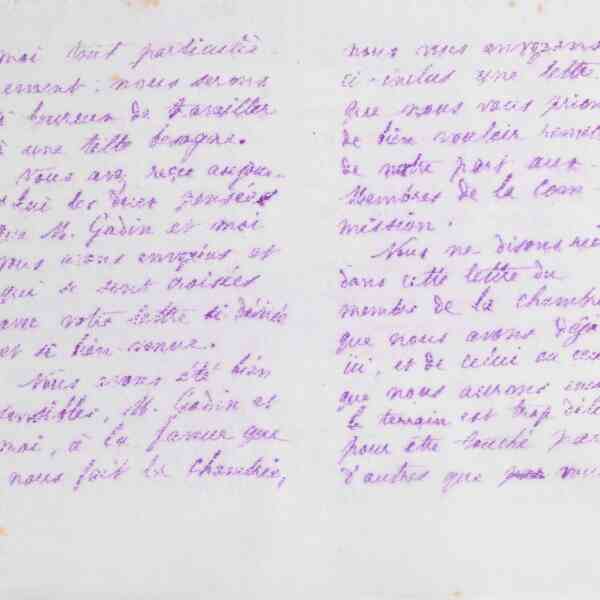 moi tout particuliè-
rement; nous serons
heureux de travailler
à une telle besogne.
Vous avez reçu aujour-
d'hui les deux pensées
que M. Godin et moi
vous avons envoyées et
qui se sont croisées
avec votre lettre si désirée
et si bien venue.
Nous avons été bien
sensibles, M. Godin et
moi, à la faveur que
nous fait la chambre,
nous vous envoyons
ci-inclus une lettre
que nous vous prions
de bien vouloir remettre
de notre part aux
Membres de la Com-
mission.
Nous ne disons rien
dans cette lettre du
membre de la chambre
que nous avons déjà
ici, et de celui ou ceux
que nous aurons encore
le terrain est trop délicat
pour être touché par
d'autres que vous